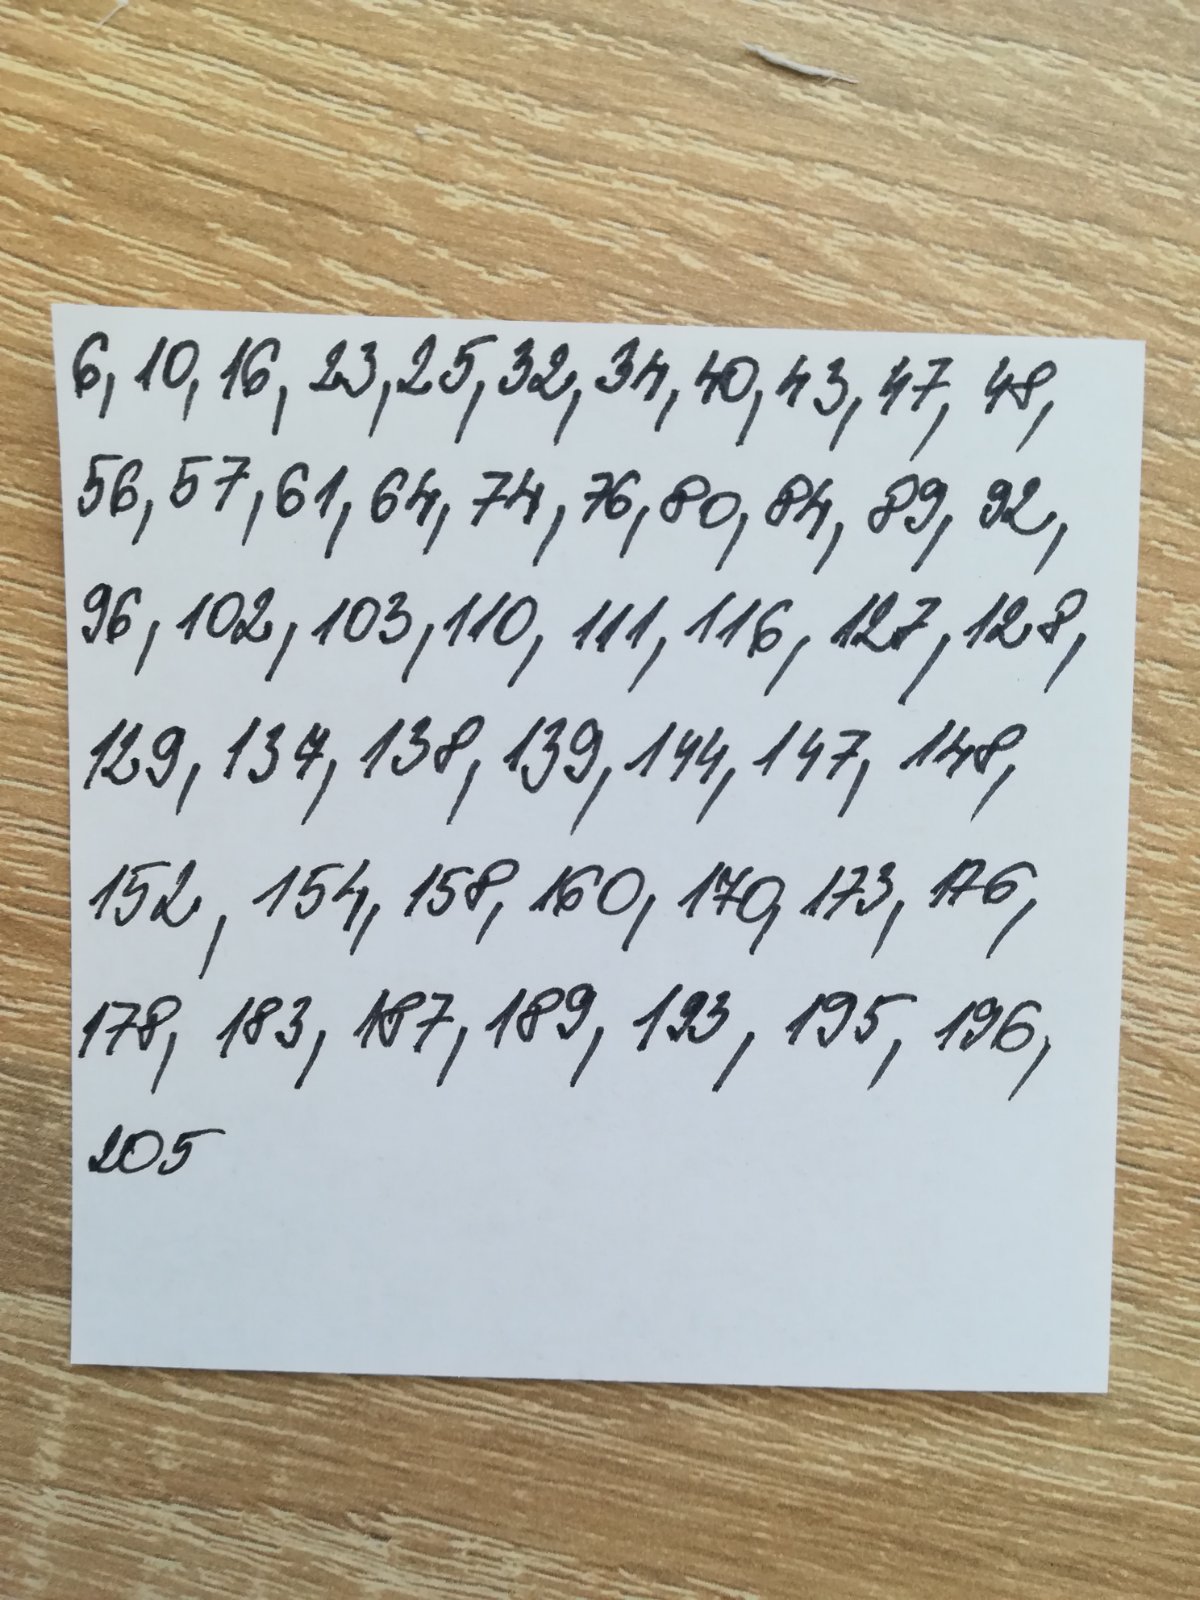 6, 10, 16, 23, 25, 32, 34, 40, 43, 47, 48,
56, 57, 61, 64, 74, 76, 80, 84, 89, 92,
96, 102, 103, 110, 111, 116, 127, 128,
129, 137, 138, 139, 144, 147, 148,
152, 154, 158, 160, 170, 173, 176,
178, 183, 187, 189, 193, 195, 196,
205